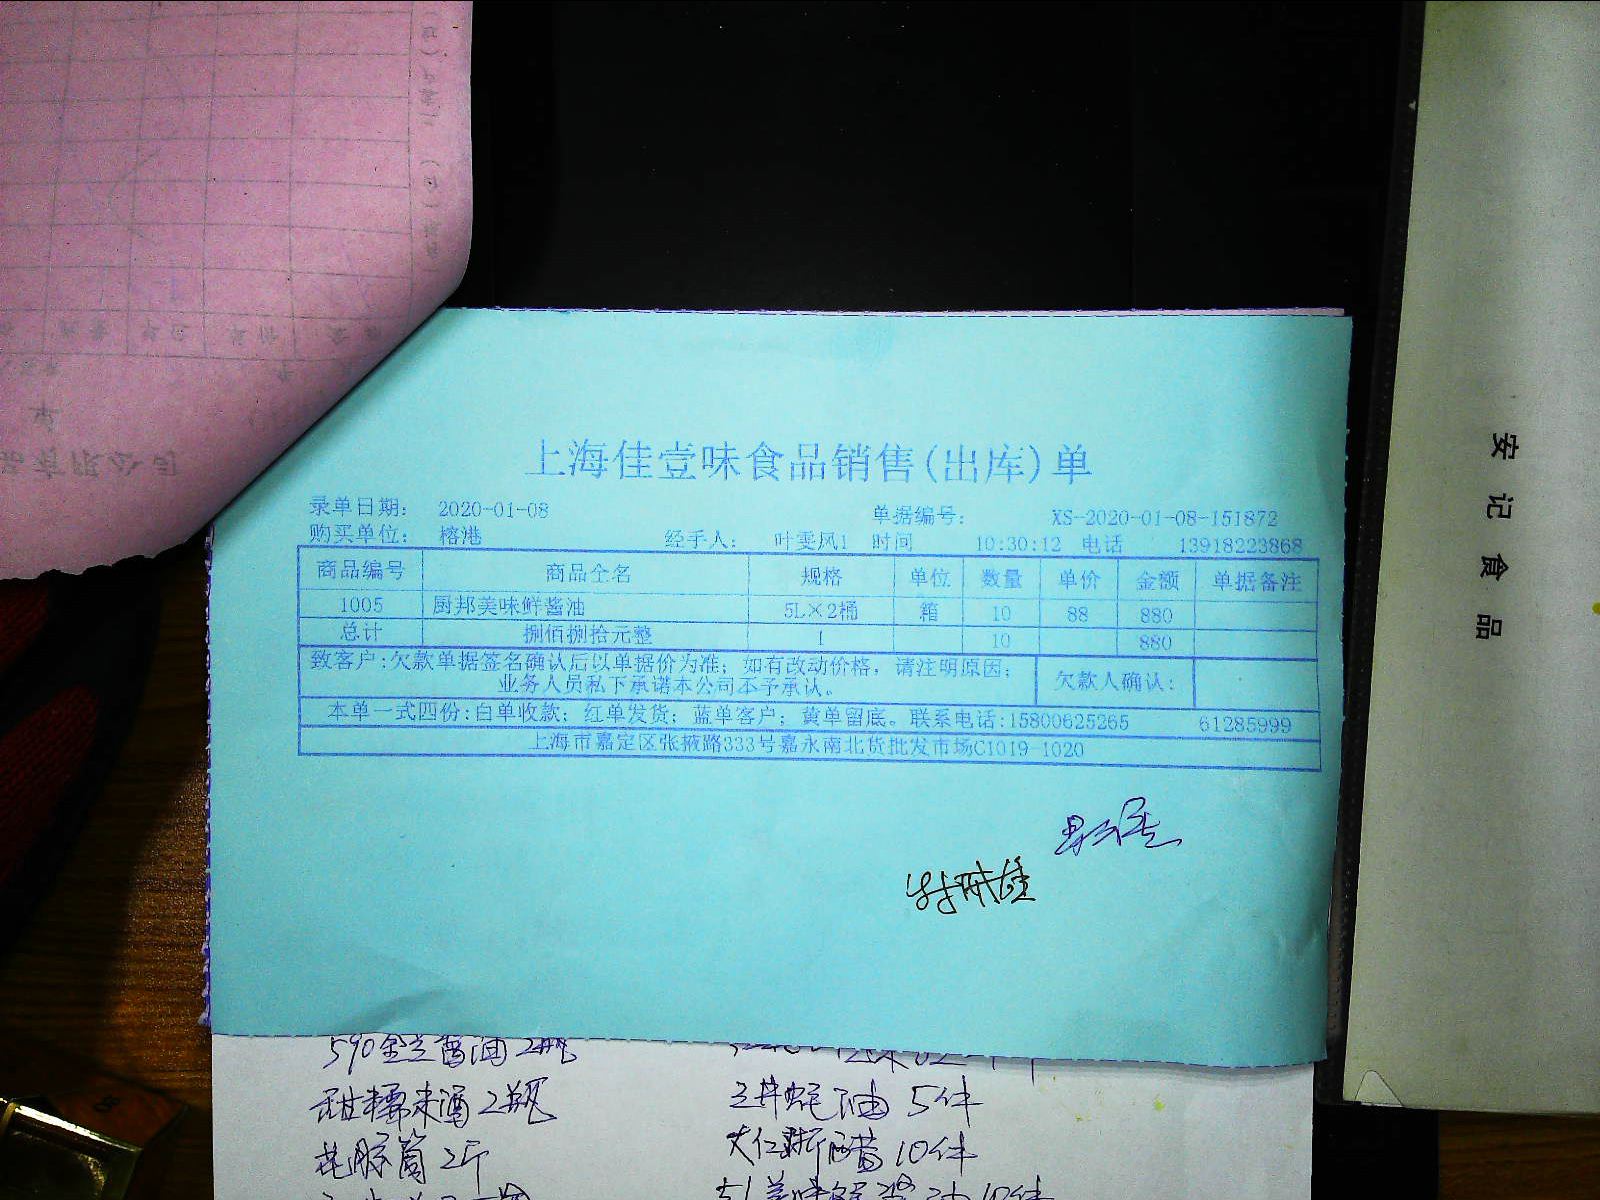 上海佳壹味食品销售(出库)单
录单日期： 2020-01-08 单据编号： XS-2020-01-08-151872
购买单位： 榕港 经手人： 叶雯凤1 时间 10:30:12 电话 13918223868
商品编号 商品全名 规格 单位 数量 单价 金额 单据备注
1005 厨邦美味鲜酱油 5L×2桶 箱 10 88 880
总计 捌佰捌拾元整 1 10 880
致客户:欠款单据签名确认后以单据价为准；如有改动价格，请注明原因；
业务人员私下承诺本公司不予承认。 欠款人确认:
本单一式四份:白单收款；红单发货；蓝单客户；黄单留底。联系电话:15800625265 61285999
上海市嘉定区张掖路333号嘉永南北货批发市场C1019-1020
590金兰酱油2瓶
甜糯米酒2瓶 三井蚝油 5件
花豚筒2斤 大仁浙醋 10件
安记食品
品有限公司